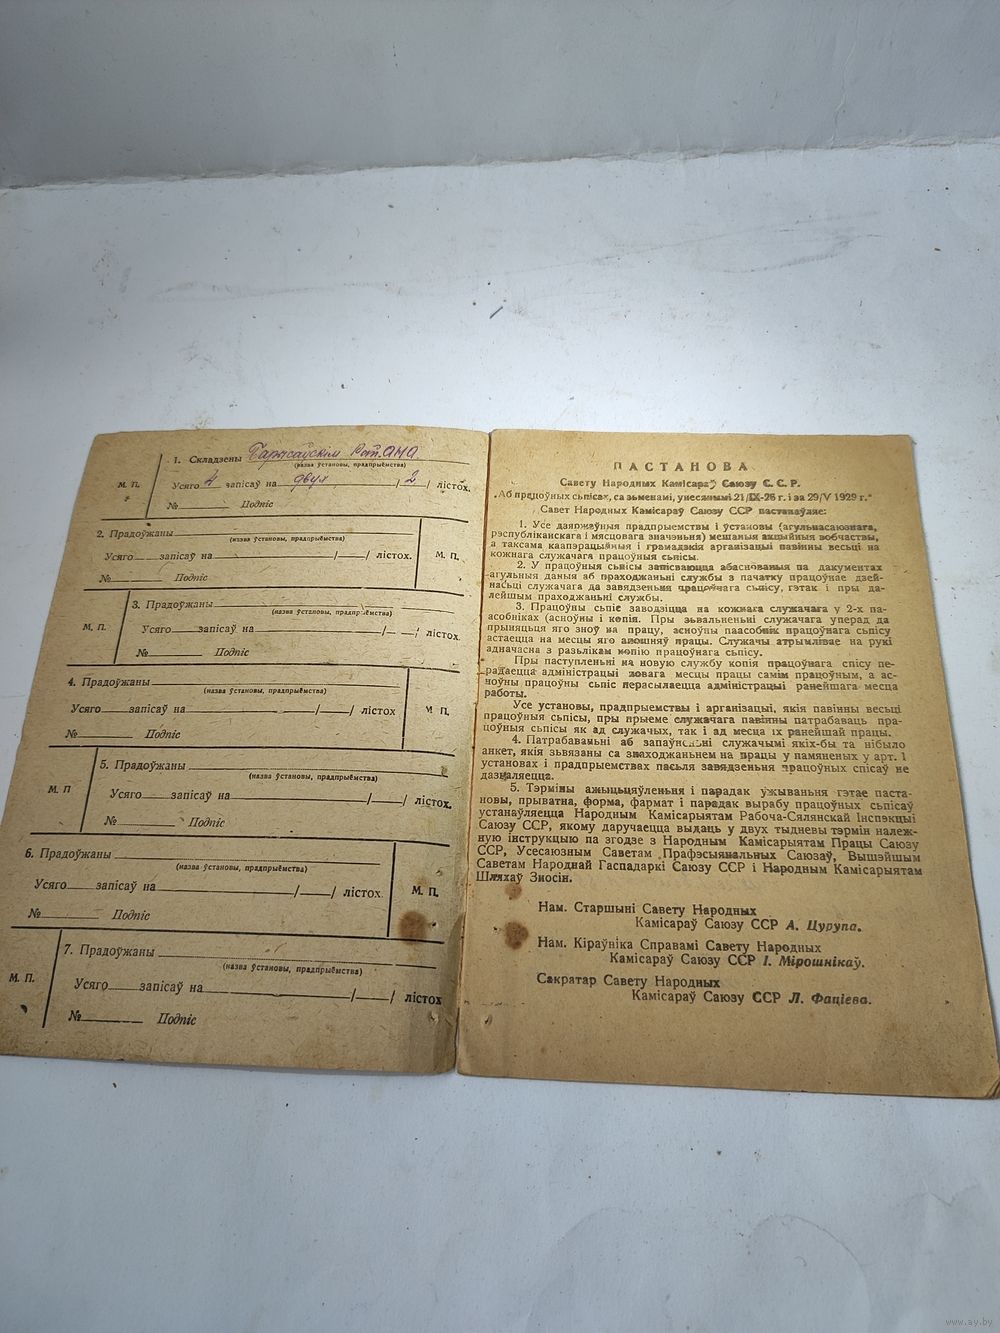 1. Складзены Барысаўскім
(назва ўстановы, прадпрыёмства)
М. П.
Усяго 4 запісаў на двух / 2 / лістох.
№ Подпіс
2. Прадоўжаны
(назва ўстановы, прадпрыёмства)
Усяго запісаў на / / лістох. М. П.
№ Подпіс
3. Прадоўжаны
(назва ўстановы, прадпрыёмства)
М. П. Усяго запісаў на / / лістох.
№ Подпіс
4. Прадоўжаны
(назва ўстановы, прадпрыёмства)
Усяго запісаў на / / лістох М П.
№ Подпіс
5. Прадоўжаны
(назва ўстановы, прадпрыёмства)
М. П Усяго запісаў на / / лістох.
№ Подпіс
6. Прадоўжаны
(назва ўстановы, прадпрыёмства)
Усяго запісаў на / / лістох. М. П.
№ Подпіс
7. Прадоўжаны
(назва ўстановы, прадпрыёмства)
М. П. Усяго запісаў на / / лістох
№ Подпіс
ПАСТАНОВА
Савету Народных Камісараў Саюзу С. С. Р.
„Аб працоўных сьпісах, са зьменамі, унесянымі 21/IX-26 г. і за 29/V 1929 г.“
Савет Народных Камісараў Саюзу ССР пастанаўляе:
1. Усе дзяржаўныя прадпрыемствы і ўстановы (агульнасаюзнага,
рэспубліканскага і мясцовага значэньня) мешаныя акцыйныя
а таксама каапэрацыйныя і грамадзкія арганізацыі павінны весьці на
кожнага служачага працоўныя сьпісы.
2. У працоўныя сьпісы запісваюцца абаснованыя па дакументах
агульныя даныя аб праходжаньні службы з пачатку працоўнае дзей-
насьці служачага да завядзеньня працоўнага сьпісу, гэтак і пры да-
лейшым праходжаньні службы.
3. Працоўны сьпіс заводзіцца на кожнага служачага у 2-х па-
асобніках (асноўны і копія. Пры зьвальненьні служачага уперад да
прыняцьця яго зноў на працу, асноўны паасобнік працоўнага сьпісу
астаецца на месцы яго працы. Служачы атрымлівае на рукі
адначасна з разьлікам копію працоўнага сьпісу.
Пры паступленьні на новую службу копія працоўнага спісу пе-
радаецца адміністрацыі новага месцы працы самім працоўным, а ас-
ноўны працоўны сьпіс перасылаецца адміністрацыі ранейшага месца
работы.
Усе установы, прадпрыемствы і арганізацыі, якія павінны весьці
працоўныя сьпісы, пры прыеме служачага павінны патрабаваць пра-
цоўныя сьпісы як ад служачых, так і ад месца іх ранейшай працы.
4. Патрабаваньні аб запаўненьні служачымі якіх-бы та нібыло
анкет, якія зьвязаны са знаходжаньнем на працы у памяненых у арт. 1
установах і прадпрыемствах пасьля завядзеньня працоўных спісаў не
дазваляецца.
5. Тэрміны ажыцьцяўленьня і парадак ужываньня гэтае паста-
новы, прыватна, форма, фармат і парадак вырабу працоўных сьпісаў
устанаўляецца Народным Камісарыятам Рабоча-Сялянскай Інспэкцыі
Саюзу ССР, якому даручаецца выдаць у двух тыдневы тэрмін належ-
ную інструкцыю па згодзе з Народным Камісарыятам Працы Саюзу
ССР, Усесаюзным Саветам Прафэсыянальных Саюзаў, Вышэйшым
Саветам Народнай Гаспадаркі Саюзу ССР і Народным Камісарыятам
Шляхаў Зносін.
Нам. Старшыні Савету Народных
Камісараў Саюзу ССР А. Цурупа.
Нам. Кіраўніка Справамі Савету Народных
Камісараў Саюзу ССР І. Мірошнікаў.
Сакратар Савету Народных
Камісараў Саюзу ССР Л. Фаціева.
www.ay.by